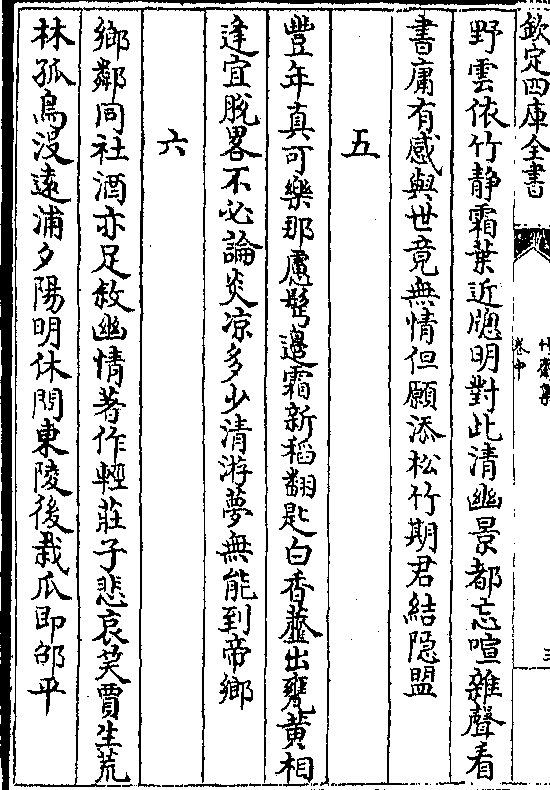 欽定四庫全書
卷中
三
野雲依竹静霜葉近牕明對此清幽景都忘喧雜聲看
書庸有感與世竟無情但願添松竹期君結隠盟
五
豐年真可樂那慮鬂邉霜新稻翻匙白香虀出甕黄相
逢宜脱畧不必論炎凉多少清游夢無能到帝鄉
六
鄉鄰同社酒亦足敘幽情著作輕莊子悲哀笑賈生荒
林孤鳥没遠浦夕陽明休問東陵後栽瓜即邵平